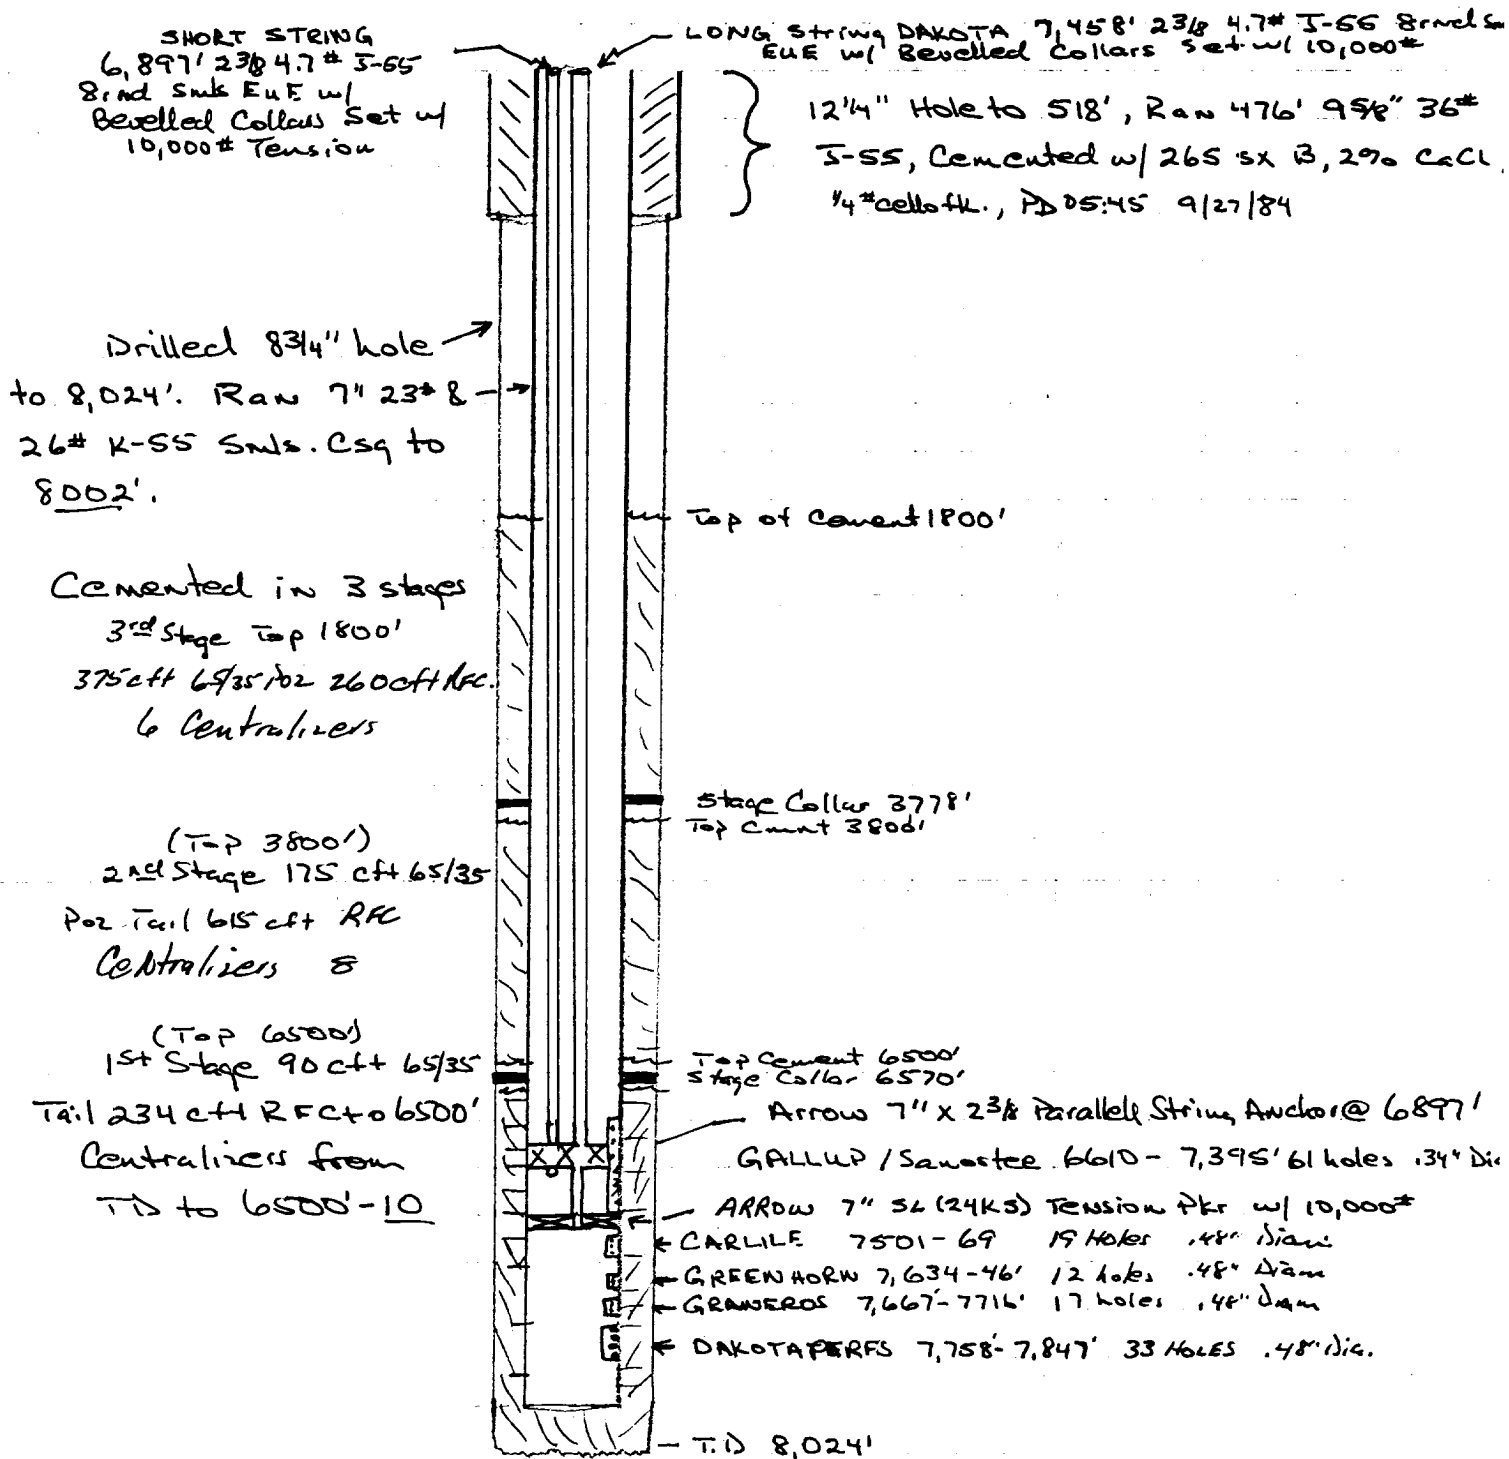 SHORT STRING
6,897' 2 3/8 4.7# J-55
8rnd Smls EUE w/
Bevelled Collars Set w/
10,000# Tension
LONG String DAKOTA 7,458' 2 3/8 4.7# J-55 8rnd Sm
EUE w/ Bevelled Collars Set w/ 10,000#
12 1/4" Hole to 518', Ran 476' 9 5/8" 36#
J-55, Cemented w/ 265 sx B, 2% CaCl
1/4# celloflk., PD 05:45 9/27/84
Drilled 8 3/4" hole
to 8,024'. Ran 7" 23# &
26# K-55 Smls. Csg to
8002'.
Top of Cement 1800'
Cemented in 3 stages
3rd Stage Top 1800'
375 cft 65/35 Poz 260 cft RFC.
6 Centralizers
Stage Collar 3778'
Top Cmnt 3800'
(Top 3800')
2nd Stage 175 cft 65/35
Poz Tail 615 cft RFC
Centralizers 8
(Top 6500')
1st Stage 90 cft 65/35
Tail 234 cft RFC to 6500'
Centralizers from
TD to 6500'-10
Top Cement 6500'
Stage Collar 6570'
Arrow 7" X 2 3/8 Parallell String Anchor @ 6897'
GALLUP / Sanostee 6610 - 7,395' 61 holes .34" Di
ARROW 7" SL (24KS) Tension Pkr w/ 10,000#
CARLILE 7501-69 19 Holes .48" Diam
GREENHORN 7,634-46' 12 holes .48" Diam
GRANEROS 7,667'-7716' 17 holes .48" Diam
DAKOTA PERFS 7,758'-7,847' 33 HOLES .48" Dia.
T.D 8,024'